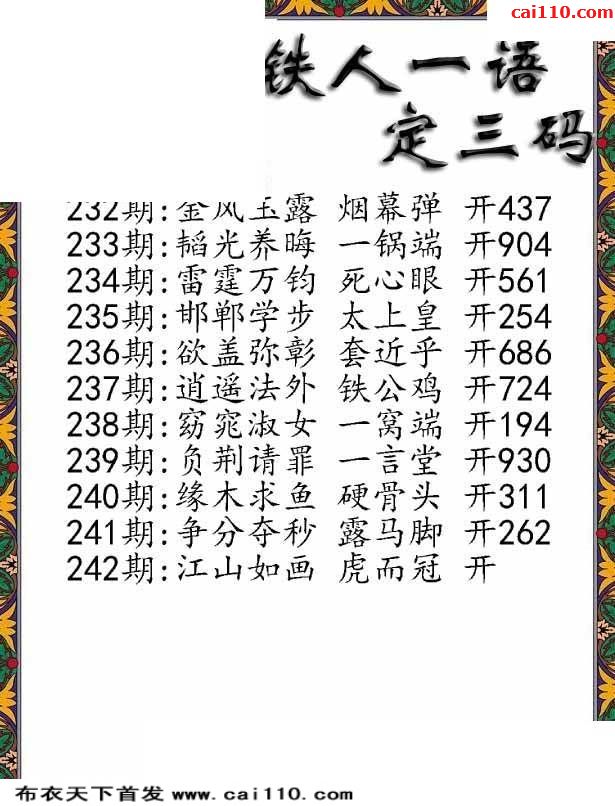 cai110.com
铁人一语
定三码
232期:金风玉露 烟幕弹 开437
233期:韬光养晦 一锅端 开904
234期:雷霆万钧 死心眼 开561
235期:邯郸学步 太上皇 开254
236期:欲盖弥彰 套近乎 开686
237期:逍遥法外 铁公鸡 开724
238期:窈窕淑女 一窝端 开194
239期:负荆请罪 一言堂 开930
240期:缘木求鱼 硬骨头 开311
241期:争分夺秒 露马脚 开262
242期:江山如画 虎而冠 开
布衣天下首发 www.cai110.com